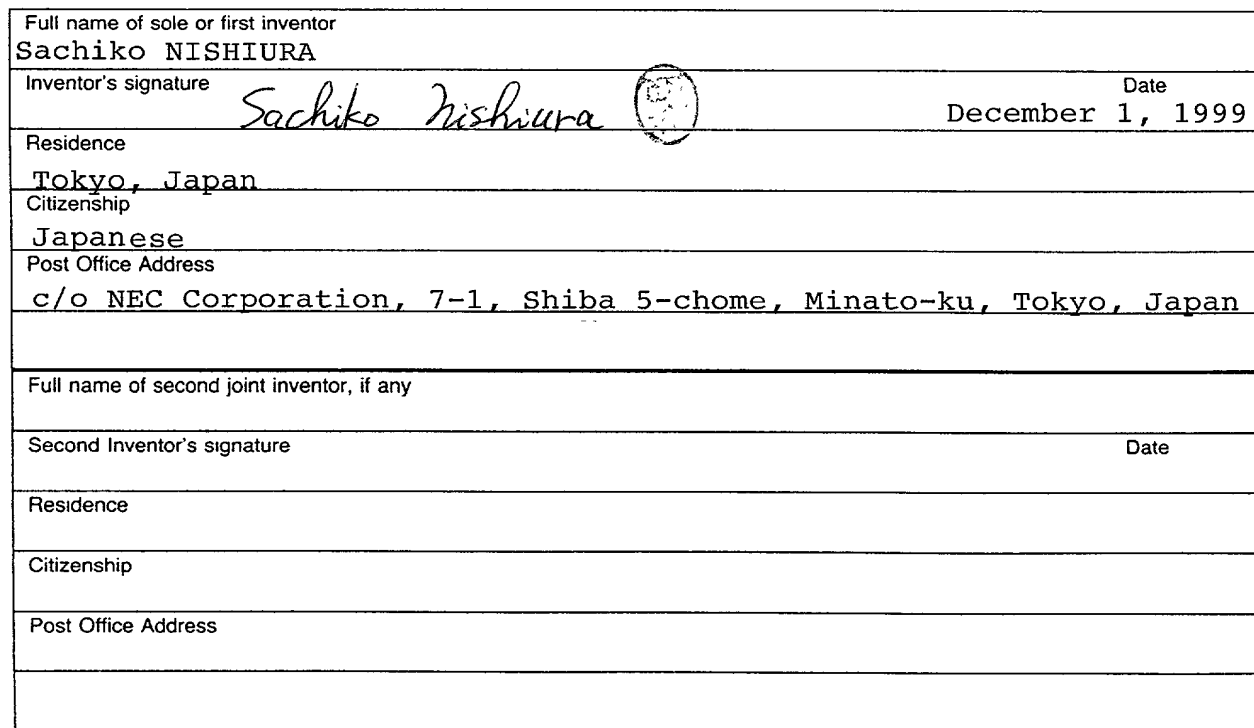 Full name of sole or first inventor
Sachiko NISHIURA
Inventor's signature Sachiko Nishiura Date
December 1, 1999
Residence
Tokyo, Japan
Citizenship
Japanese
Post Office Address
c/o NEC Corporation, 7-1, Shiba 5-chome, Minato-ku, Tokyo, Japan
Full name of second joint inventor, if any
Second Inventor's signature Date
Residence
Citizenship
Post Office Address